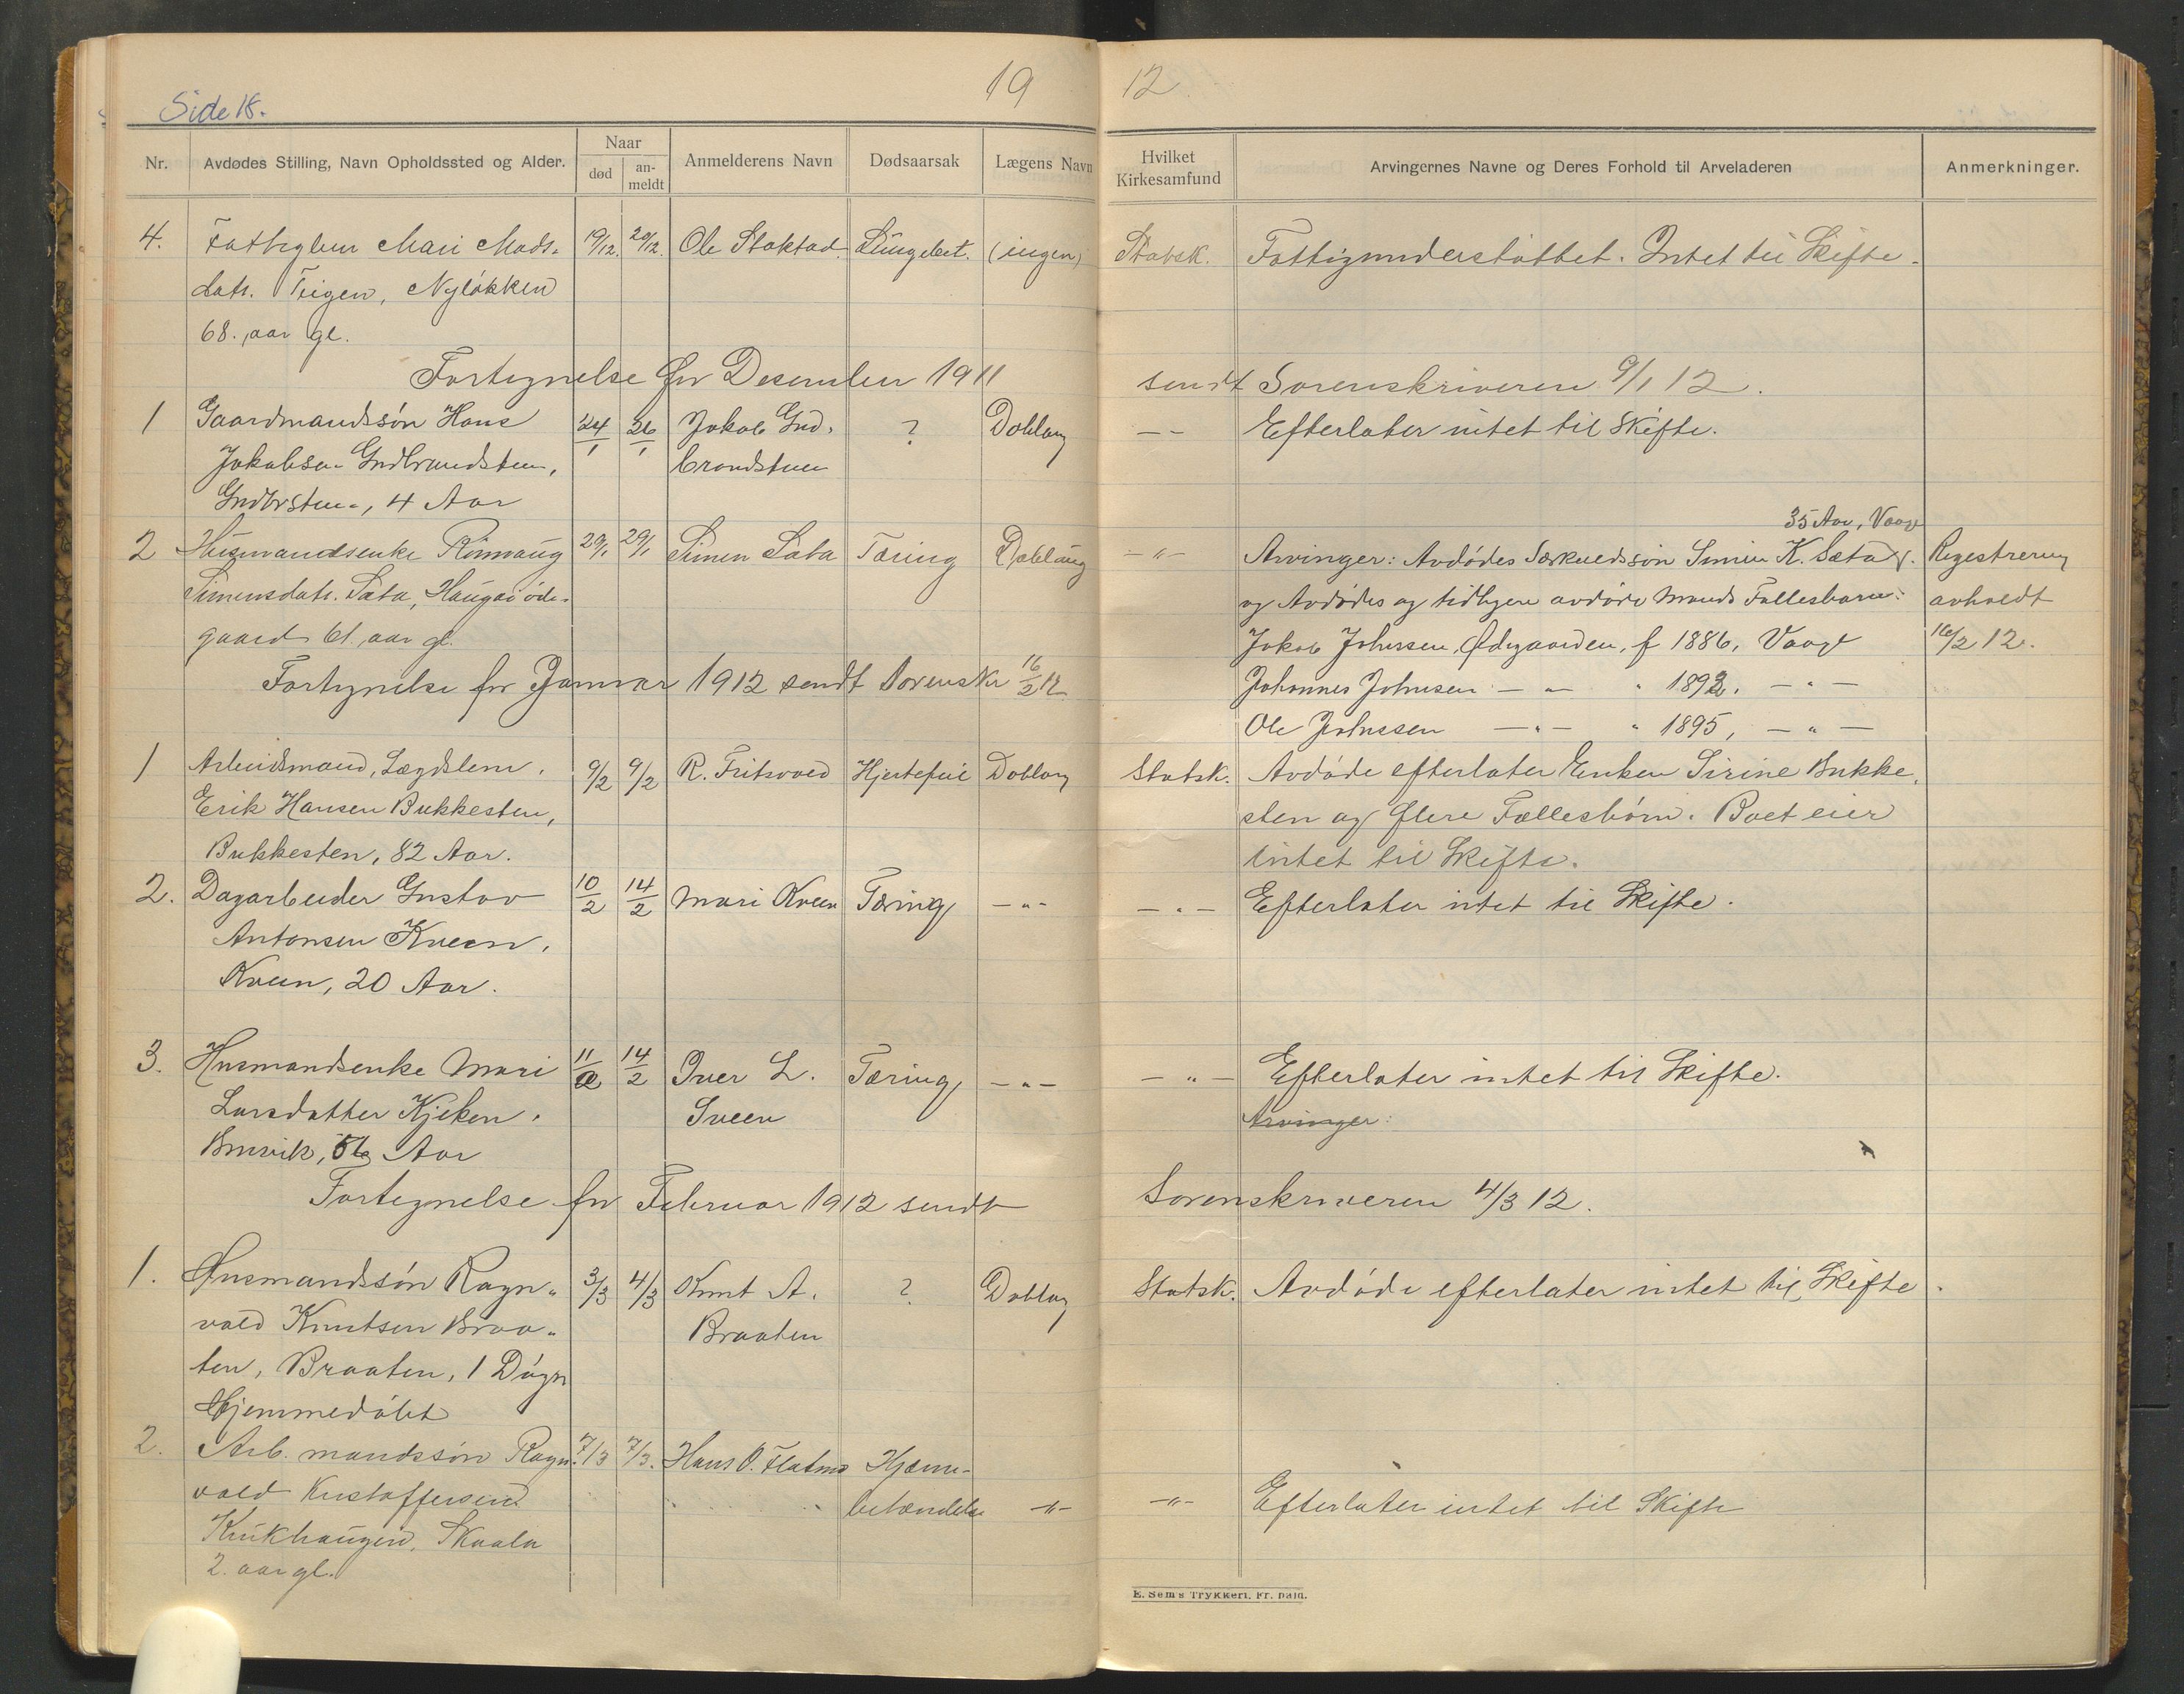 Side 18.
19 12
Nr. Avdødes Stilling, Navn Opholdssted og Alder. Naar død an-meldt Anmelderens Navn Dødsaarsak Lægens Navn Hvilket Kirkesamfund Arvingernes Navne og Deres Forhold til Arveladeren Anmerkninger.
4. Fattiglem Mari Mads- 19/12. 20/12. Ole Stokstad Lungebet. (ingen) Statsk. Fattigunderstøttet. Intet til Skifte.
datr. Teigen, Nyløkken
68. aar gl.
Fortegnelse for Desember 1911 sendt Sorenskriveren 9/1 12.
1 Gaardmandssøn Hans 24/1 26/1 Jakob Gud- ? Doblaug — — Efterlater intet til Skifte.
Jakobsen Gudbrandsten, brandstuen
Gudbrsten, 4 Aar
35 Aar, Vaage
2 Husmandsenke Rønnaug 29/1 29/1 Simen Sæta Tæring Doblaug —"— Arvinger: Avdødes Særkuldssøn Simen K. Sæta Regestrering
Simensdatr. Sæta, Haugaiøde- og Avdødes og tidligere avdøde Mands Fællesbarn: avholdt
gaard 61. aar gl. Jakob Johnssen, Ødegaarden, f 1886, Vaage 16/2 12.
Fortegnelse for Januar 1912 sendt Sorenskr 16/2 12 Johannes Johnsen — " — " 1892, — " —
Ole Johnssen — " — " 1895, — " —
1 Arbeidsmand, Lægdslem. 9/2 9/2 R. Fritsvold Hjertefeil Doblaug Statsk. Avdøde efterlater Enken Sirine Bukke-
Erik Hansen Bukkesten, sten og flere Fællesbørn. Boet eier
Bukkesten, 82 Aar. intet til Skifte.
2. Dagarbeider Gustav 10/2 14/2 Mari Kveen Tæring — " — — " — Efterlater intet til Skifte.
Antonsen Kveen,
Kveen, 20 Aar.
3. Husmandsenke Mari 11/2 14/2 Iver L. Tæring — " — — " — Efterlater intet til Skifte.
Larsdatter Kjeken, Sveen Arvinger:
56 Aar
Fortegnelse for Februar 1912 sendt Sorenskriveren 4/3 12.
1. Husmandssøn Ragn- 3/3 4/3 Knut A. ? Doblaug Statsk. Avdøde efterlater intet til Skifte.
vald Knutsen Braa- Braaten
ten, Braaten, 1 Døgn
Hjemmedøbt
2. Arb. mandssøn Ragn- 7/3 7/3. Hans O. Flatmo Hjerne-
vald Kristoffersen betændelse —"— —"— Efterlater intet til Skifte
Krukhaugen, Skaala
2. aar gl.
E. Sem's Trykkeri, Fr. hald.